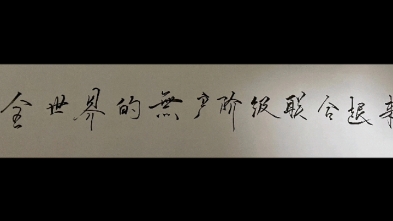 全世界的無产阶级联合起